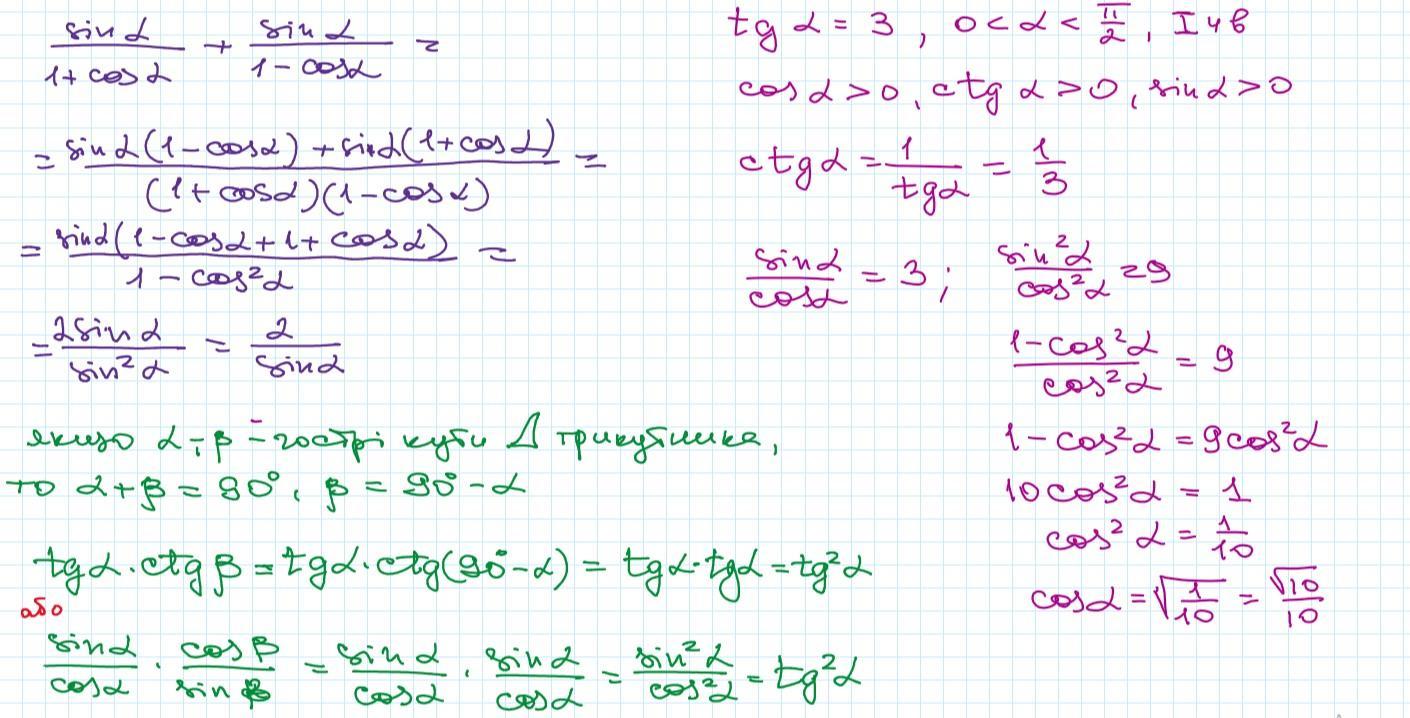 sin α / (1 + cos α) + sin α / (1 - cos α) =
= (sin α (1 - cos α) + sin α (1 + cos α)) / ((1 + cos α)(1 - cos α)) =
= sin α (1 - cos α + 1 + cos α) / (1 - cos² α) =
= 2 sin α / sin² α = 2 / sin α
якщо α і β - гострі кути ⊿ трикутника,
то α + β = 90°, β = 90° - α
tg α · ctg β = tg α · ctg (90° - α) = tg α · tg α = tg² α
або
sin α / cos α · cos β / sin β = sin α / cos α · sin α / cos α = sin² α / cos² α = tg² α
tg α = 3, 0 < α < π/2, I чв
cos α > 0, ctg α > 0, sin α > 0
ctg α = 1 / tg α = 1/3
sin α / cos α = 3; sin² α / cos² α = 9
(1 - cos² α) / cos² α = 9
1 - cos² α = 9 cos² α
10 cos² α = 1
cos² α = 1/10
cos α = √(1/10) = √10 / 10